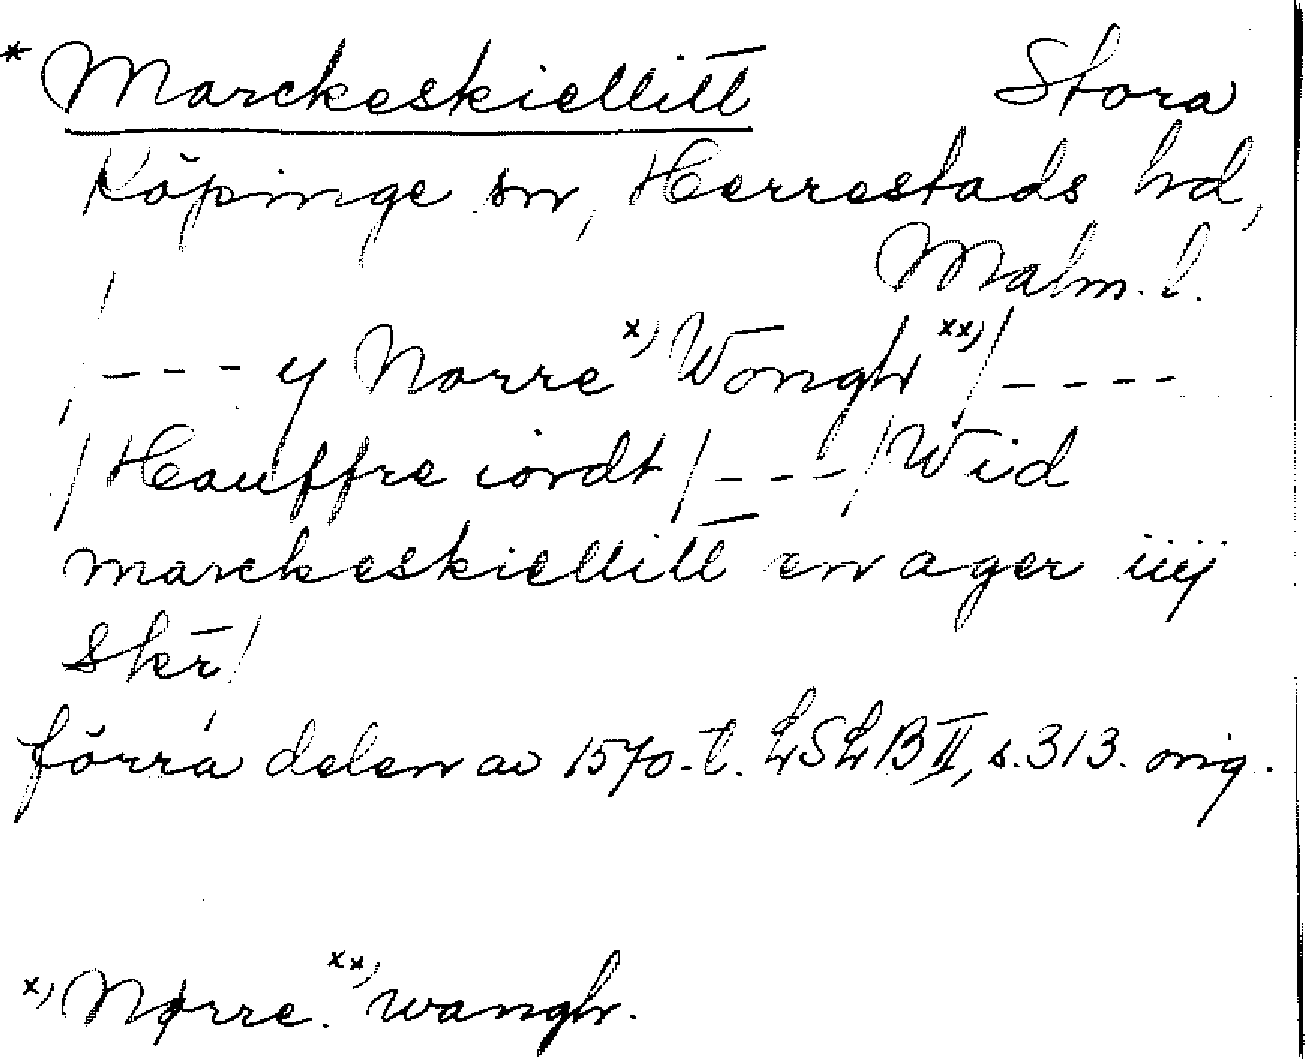 * Marckeskiellitt̄ Stora
Köpinge sn, Herrestads hd,
Malm. l.
/ - - - y Norre x) Wōngh xx) / - - - -
/ Hauffre iordt / - - - / Wid
marckeskiellitt̄ en ager iiij
skr̄ /
förra delen av 1570-t. LSLB II, s. 313. orig.
x) Nørre. xx) wangh.